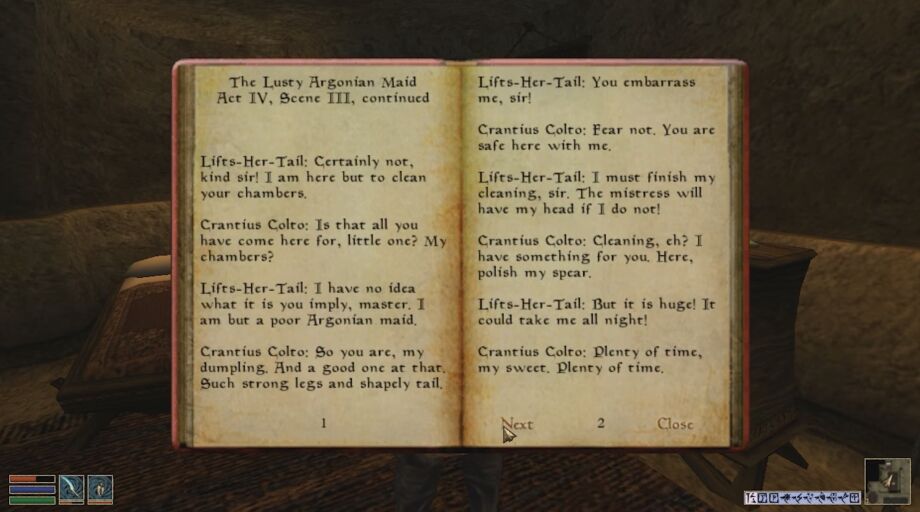 The Lusty Argonian Maid
Act IV, Scene III, continued
Lifts-Her-Tail: Certainly not,
kind sir! I am here but to clean
your chambers.
Crantius Colto: Is that all you
have come here for, little one? My
chambers?
Lifts-Her-Tail: I have no idea
what it is you imply, master. I
am but a poor Argonian maid.
Crantius Colto: So you are, my
dumpling. And a good one at that.
Such strong legs and shapely tail.
1
Lifts-Her-Tail: You embarrass
me, sir!
Crantius Colto: Fear not. You are
safe here with me.
Lifts-Her-Tail: I must finish my
cleaning, sir. The mistress will
have my head if I do not!
Crantius Colto: Cleaning, eh? I
have something for you. Here,
polish my spear.
Lifts-Her-Tail: But it is huge! It
could take me all night!
Crantius Colto: Plenty of time,
my sweet. Plenty of time.
Next 2 Close